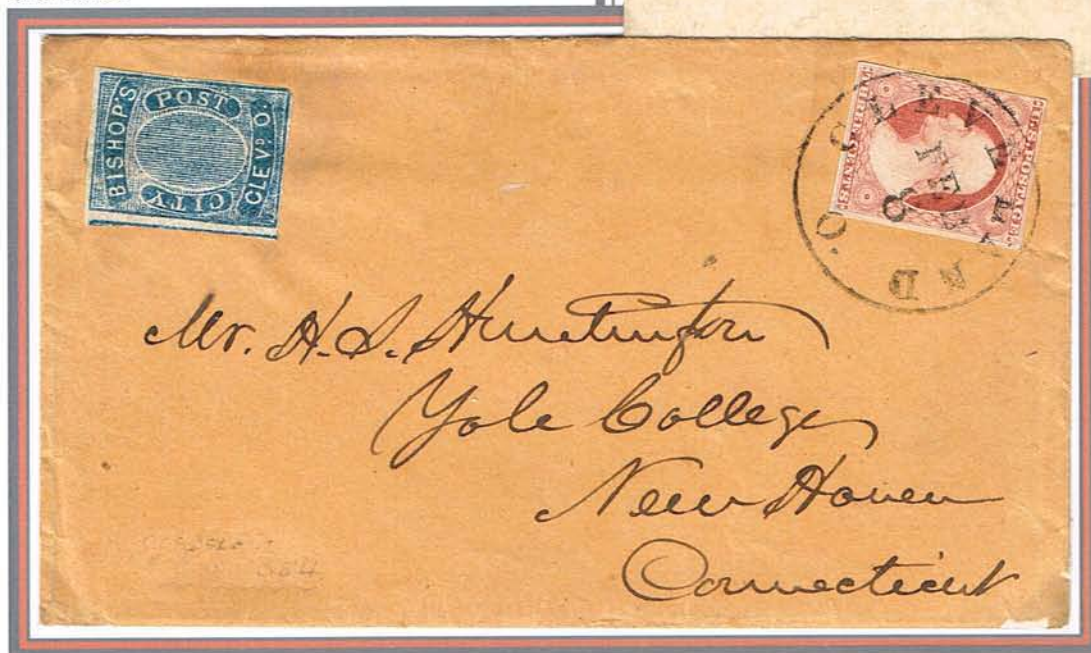 BISHOP'S
POST
CITY
CLEVD. O.
CLEVELAND O.
FEB
8
Mr. H. S. Huntington
Yale College
New Haven
Connecticut